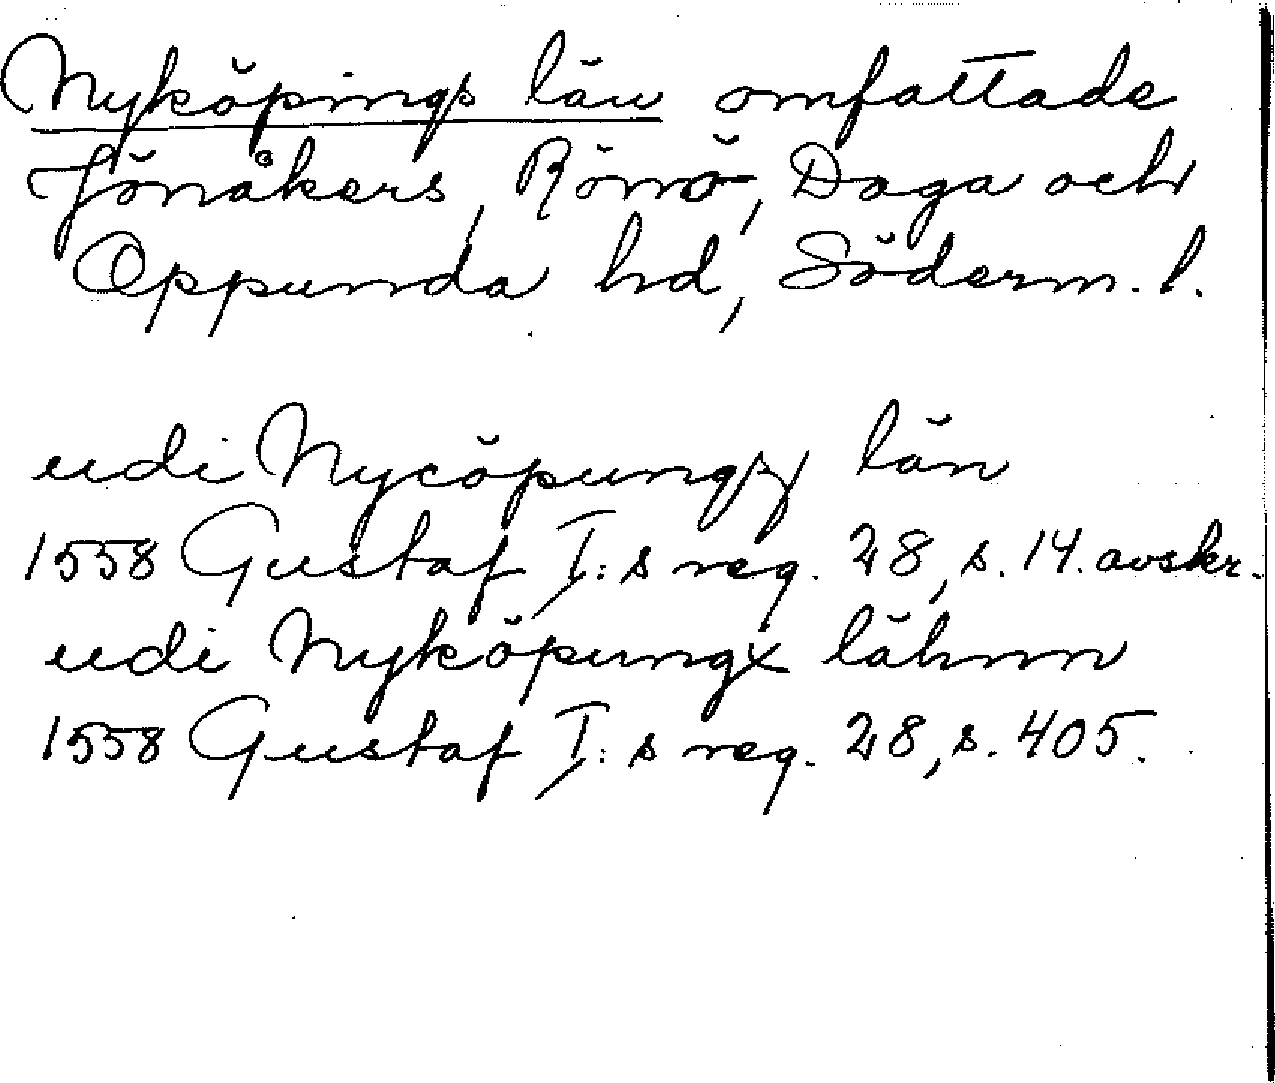 Nyköpings län omfattade
Jönåkers, Rönö, Daga och
Oppunda hd, Söderm. l.
udi Nycöpungs län
1558 Gustaf I:s reg. 28, s. 14. avskr.
udi Nyköpungx lähnn
1558 Gustaf I:s reg. 28, s. 405.